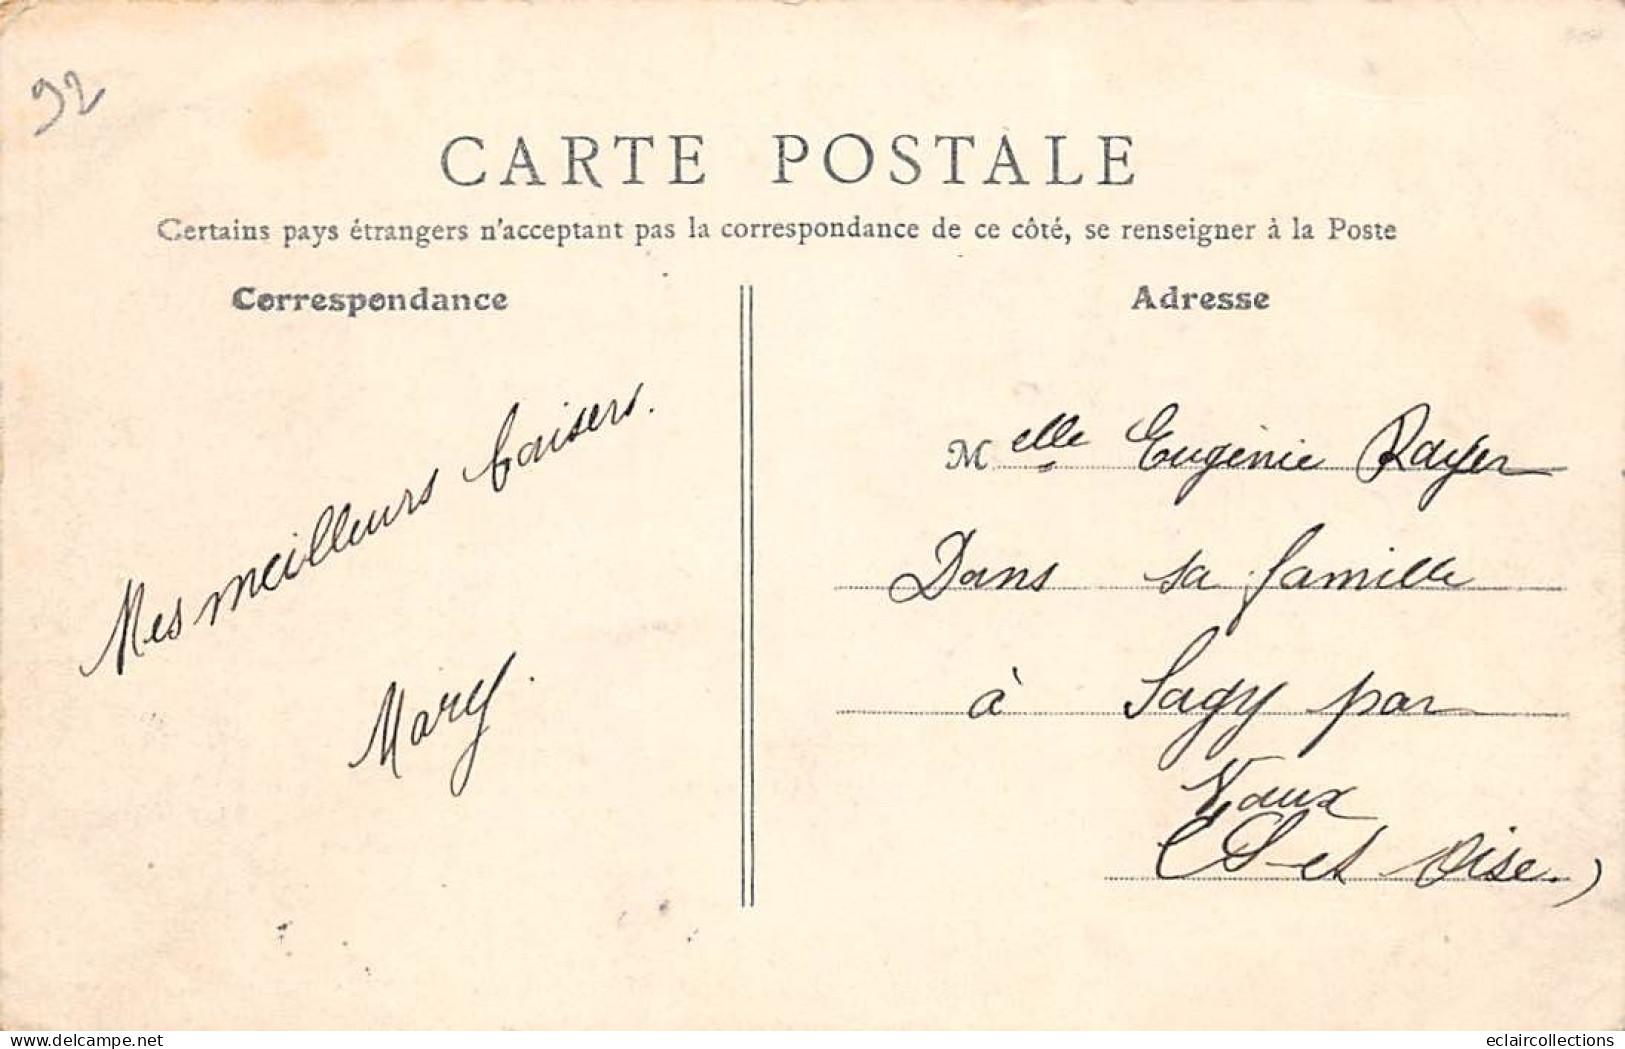 92
CARTE POSTALE
Certains pays étrangers n'acceptant pas la correspondance de ce côté, se renseigner à la Poste
Correspondance
Adresse
Mes meilleurs baisers.
Mary.
Melle Eugénie Rayer
Dans sa famille
à Sagy par
Vaux
(S et Oise.)
delcampe.net
eclaircollections